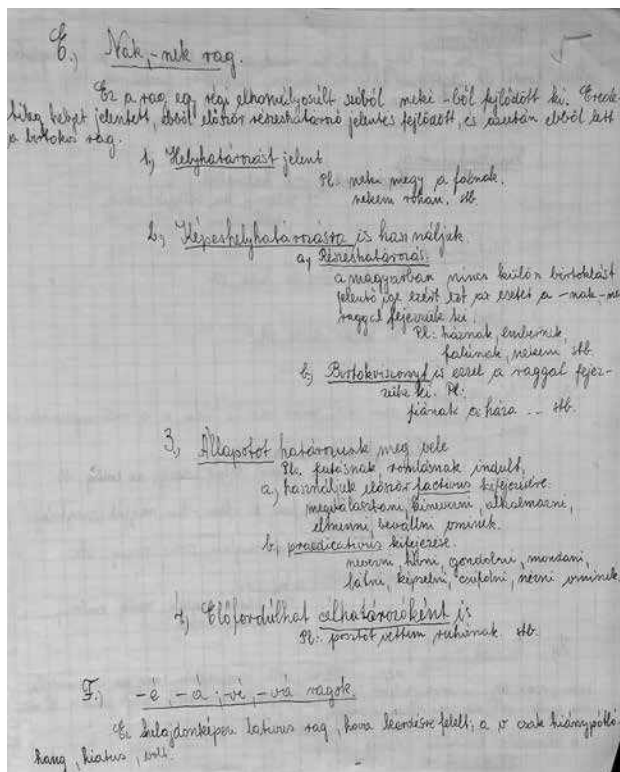 E., Nak, -nek rag.
Ez a rag egy régi elhomályosúlt szóból neki -ból fejlődött ki. Erede-
tileg helyet jelentett, ebből először részeshatározó jelentés fejlődött, és azután ebből lett
a birtokos rag.
1, Helyhatározást jelent
Pl. neki megy a falnak.
nekem rohan. stb.
2, Képeshelyhatározásra is használjuk
a, Részeshatározás:
a magyarban nincs külön birtoklást
jelentő ige ezért ezt az esetet a -nak -ne
raggal fejezzük ki.
Pl.: háznak, embernek,
falúnak, nekem stb.
b, Birtokviszonyt is ezzel a raggal fejez-
zük ki. Pl:
fiának a háza ... stb.
3, Állapotot határozunk meg vele
Pl. futásnak, romlásnak indult,
a, használjuk először factivus kifejezésére.
megválasztani, kinevezni, alkalmazni,
elmenni, bevállni vminek.
b, praedicativus kifejezése.
nevezni, hívni, gondolni, mondani,
látni, képzelni, csúfolni, nézni vminek.
4, Előfordúlhat célhatározóként is
Pl: posztót vettem ruhának stb.
F., -é, -á; -vé, -vá ragok.
Ez tulajdonképen lativus rag, hova kérdésre felelt; a v csak hiánypótló
hang, hiatus, volt.